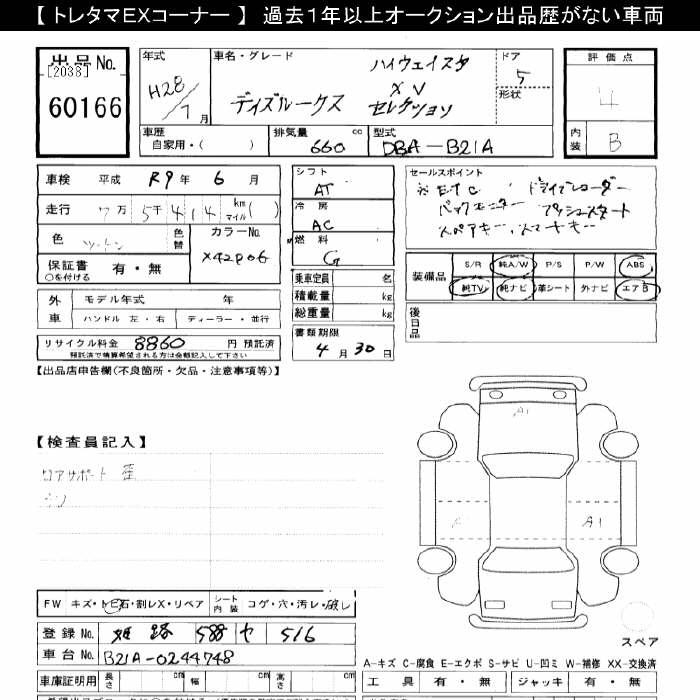 【 トレタマEXコーナー 】 過去1年以上オークション出品歴がない車両
出品 No.
[2038]
60166
年式
H28/7月
車名・グレード
ハイウェイスタ
XV
デイズルークス セレクション
ドア
5
形状
評価点
4
内装
B
車歴
自家用・( )
排気量 cc
660
型式
DBA-B21A
車検 平成 R9年 6月
走行 7万5千414 km マイル( )
色 ツートン 色替
カラーNo.
X42P06
保証書 有・無
○を付ける
外車
モデル年式 年
ハンドル 左・右 ディーラー・並行
リサイクル料金 8860 円 預託済
預託済で精算希望される方は金額記入して下さい
シフト
AT
冷房
AC
燃料
G
乗車定員 名
積載量 kg
総重量 kg
書類期限
4月30日
セールスポイント
※ETC ドライブレコーダー
バックモニター プッシュスタート
スペアキー、スマートキー
装備品
S/R 純A/W P/S P/W ABS
純TV 純ナビ 革シート 外ナビ エアB
後日品
【出品店申告欄(不良箇所・欠品・注意事項等)】
【検査員記入】
コアサポート 歪
FW キズ・トビ石・割レX・リペア シート内装 コゲ・穴・汚レ・破レ
登録No. 姫路 588 セ 516
車台No. B21A-0244748
車庫証明用 長さ cm 幅 cm 高さ cm
A1
A
A1
スペア
A-キズ C-腐食 E-エクボ S-サビ U-凹ミ W-補修 XX-交換済
工具 有・無 ジャッキ 有・無